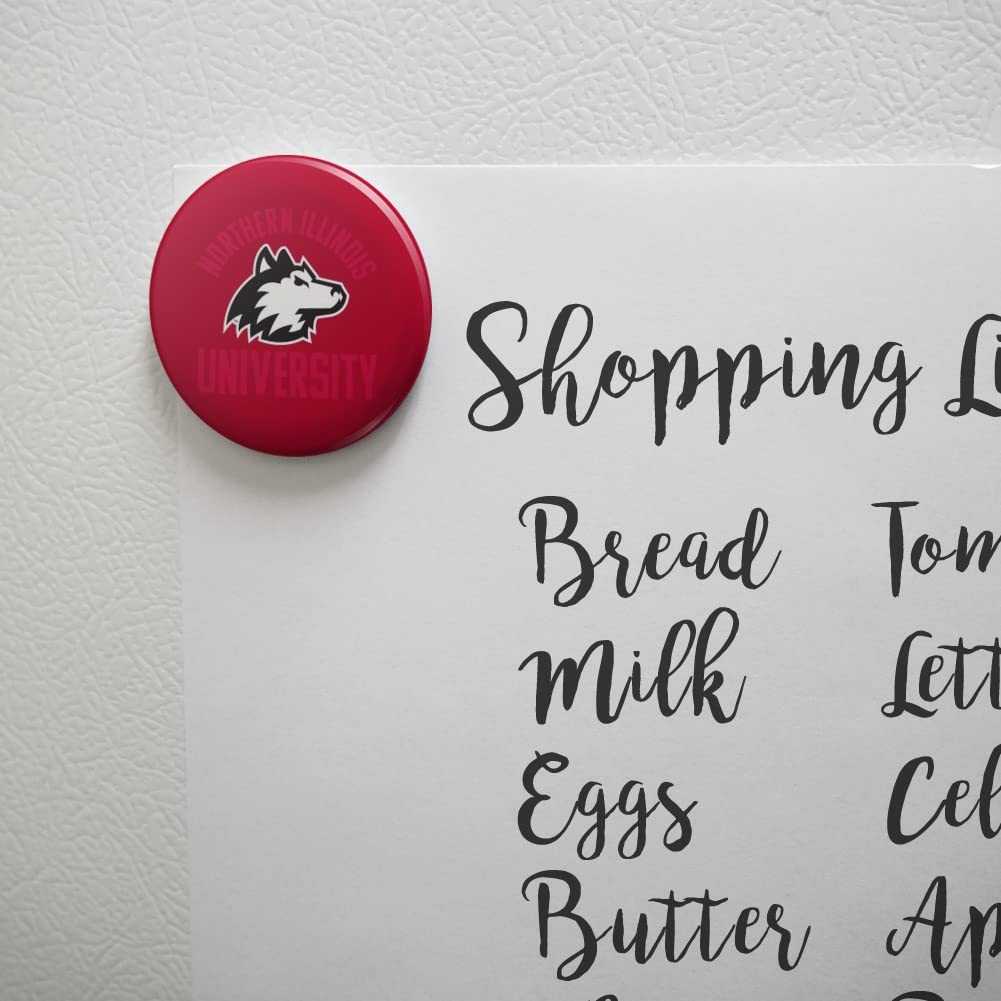 NORTHERN ILLINOIS
UNIVERSITY
Shopping Li
Bread Tom
Milk Lett
Eggs Cel
Butter Ap